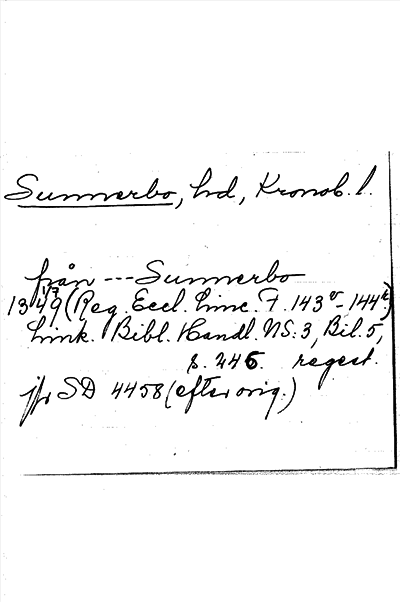 Sunnerbo, hd, Kronob. l.
från --- Sunnerbo
1349 1/7 (Reg. Eccl. Linc. F. 143v-144r)
Link. Bibl. Handl. NS: 3, Bil. 5,
s. 246. regest.
jfr SD 4458 (efter orig.)